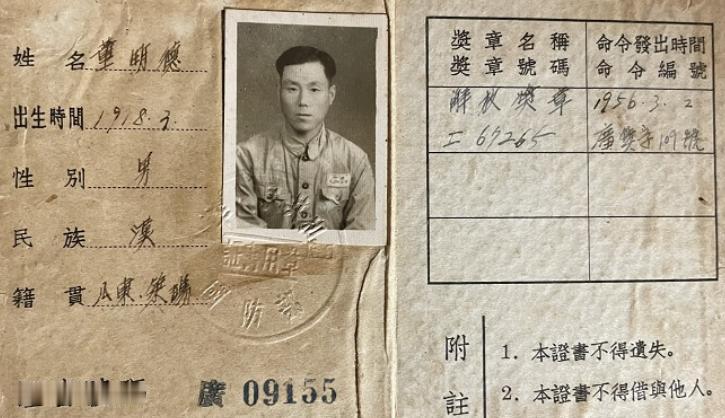 姓名 董明德
出生時間 1918.3.
性別 男
民族 漢
籍貫 山東.榮
廣 09155
獎章名稱 命令發出時間
獎章號碼 命令編號
解放獎章 1956.3.2
工67265 廣獎字109號
附註
1. 本證書不得遺失。
2. 本證書不得借與他人。